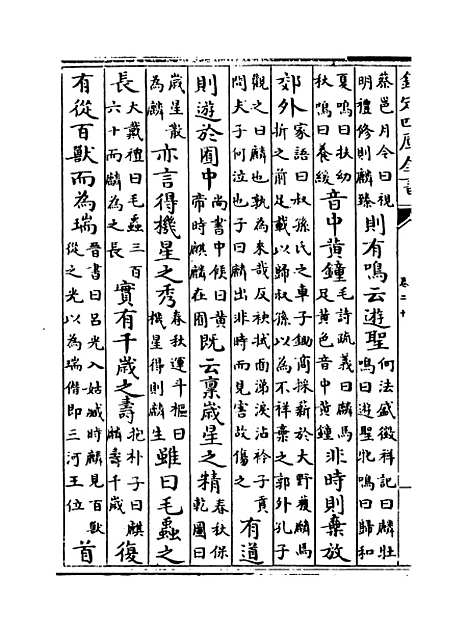 欽定四庫全書
卷二十
蔡邕月令曰視明禮修則麟臻則有鳴云遊聖何法盛徵祥記曰麟牡鳴曰遊聖牝鳴曰歸和
夏鳴曰扶幼秋鳴曰養綏音中黄鐘毛詩疏義曰麟馬足黄色音中黄鐘非時則棄放
郊外家語曰叔孫氏之車子鉏商採薪於大野獲麟焉折之前足載以歸叔孫以為不祥棄之郭外孔子
觀之曰麟也孰為來哉反袂拭面涕淚沾衿子貢問夫子何泣也子曰麟出非時而見害故傷之有道
則遊於囿中尚書中候曰黄帝時麒麟在囿既云稟歲星之精春秋保乾圖曰
歲星散為麟亦言得機星之秀春秋運斗樞曰機星得則麟生雖曰毛蟲之
長大戴禮曰毛蟲三百六十而麟為之長實有千歲之壽抱朴子曰麒麟壽千歲復
有從百獸而為瑞晉書曰吕光入姑臧時麟見百獸從之光以為瑞僭即三河王位首